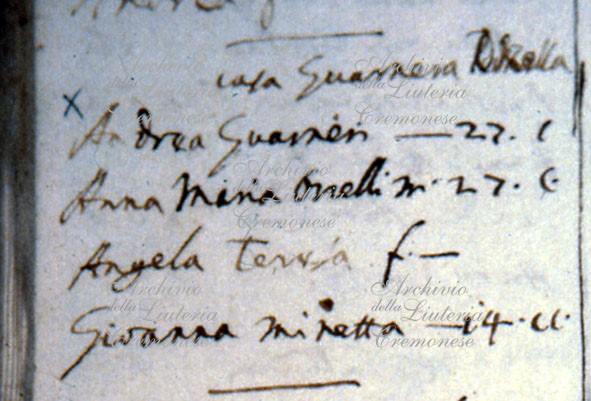 casa Guarnera
x
Andrea Guarneri — 27. C
Anna Maria Orelli m. 27. C
Angela Teresia f. —
Giovanna minetta — 14. CC.
Archivio
della Liuteria
Cremonese
Archivio
della Liuteria
Cremonese
Archivio
della Liuteria
Cremonese
Archivio
della Liuteria
Cremonese
Archivio
della Liuteria
Cremonese